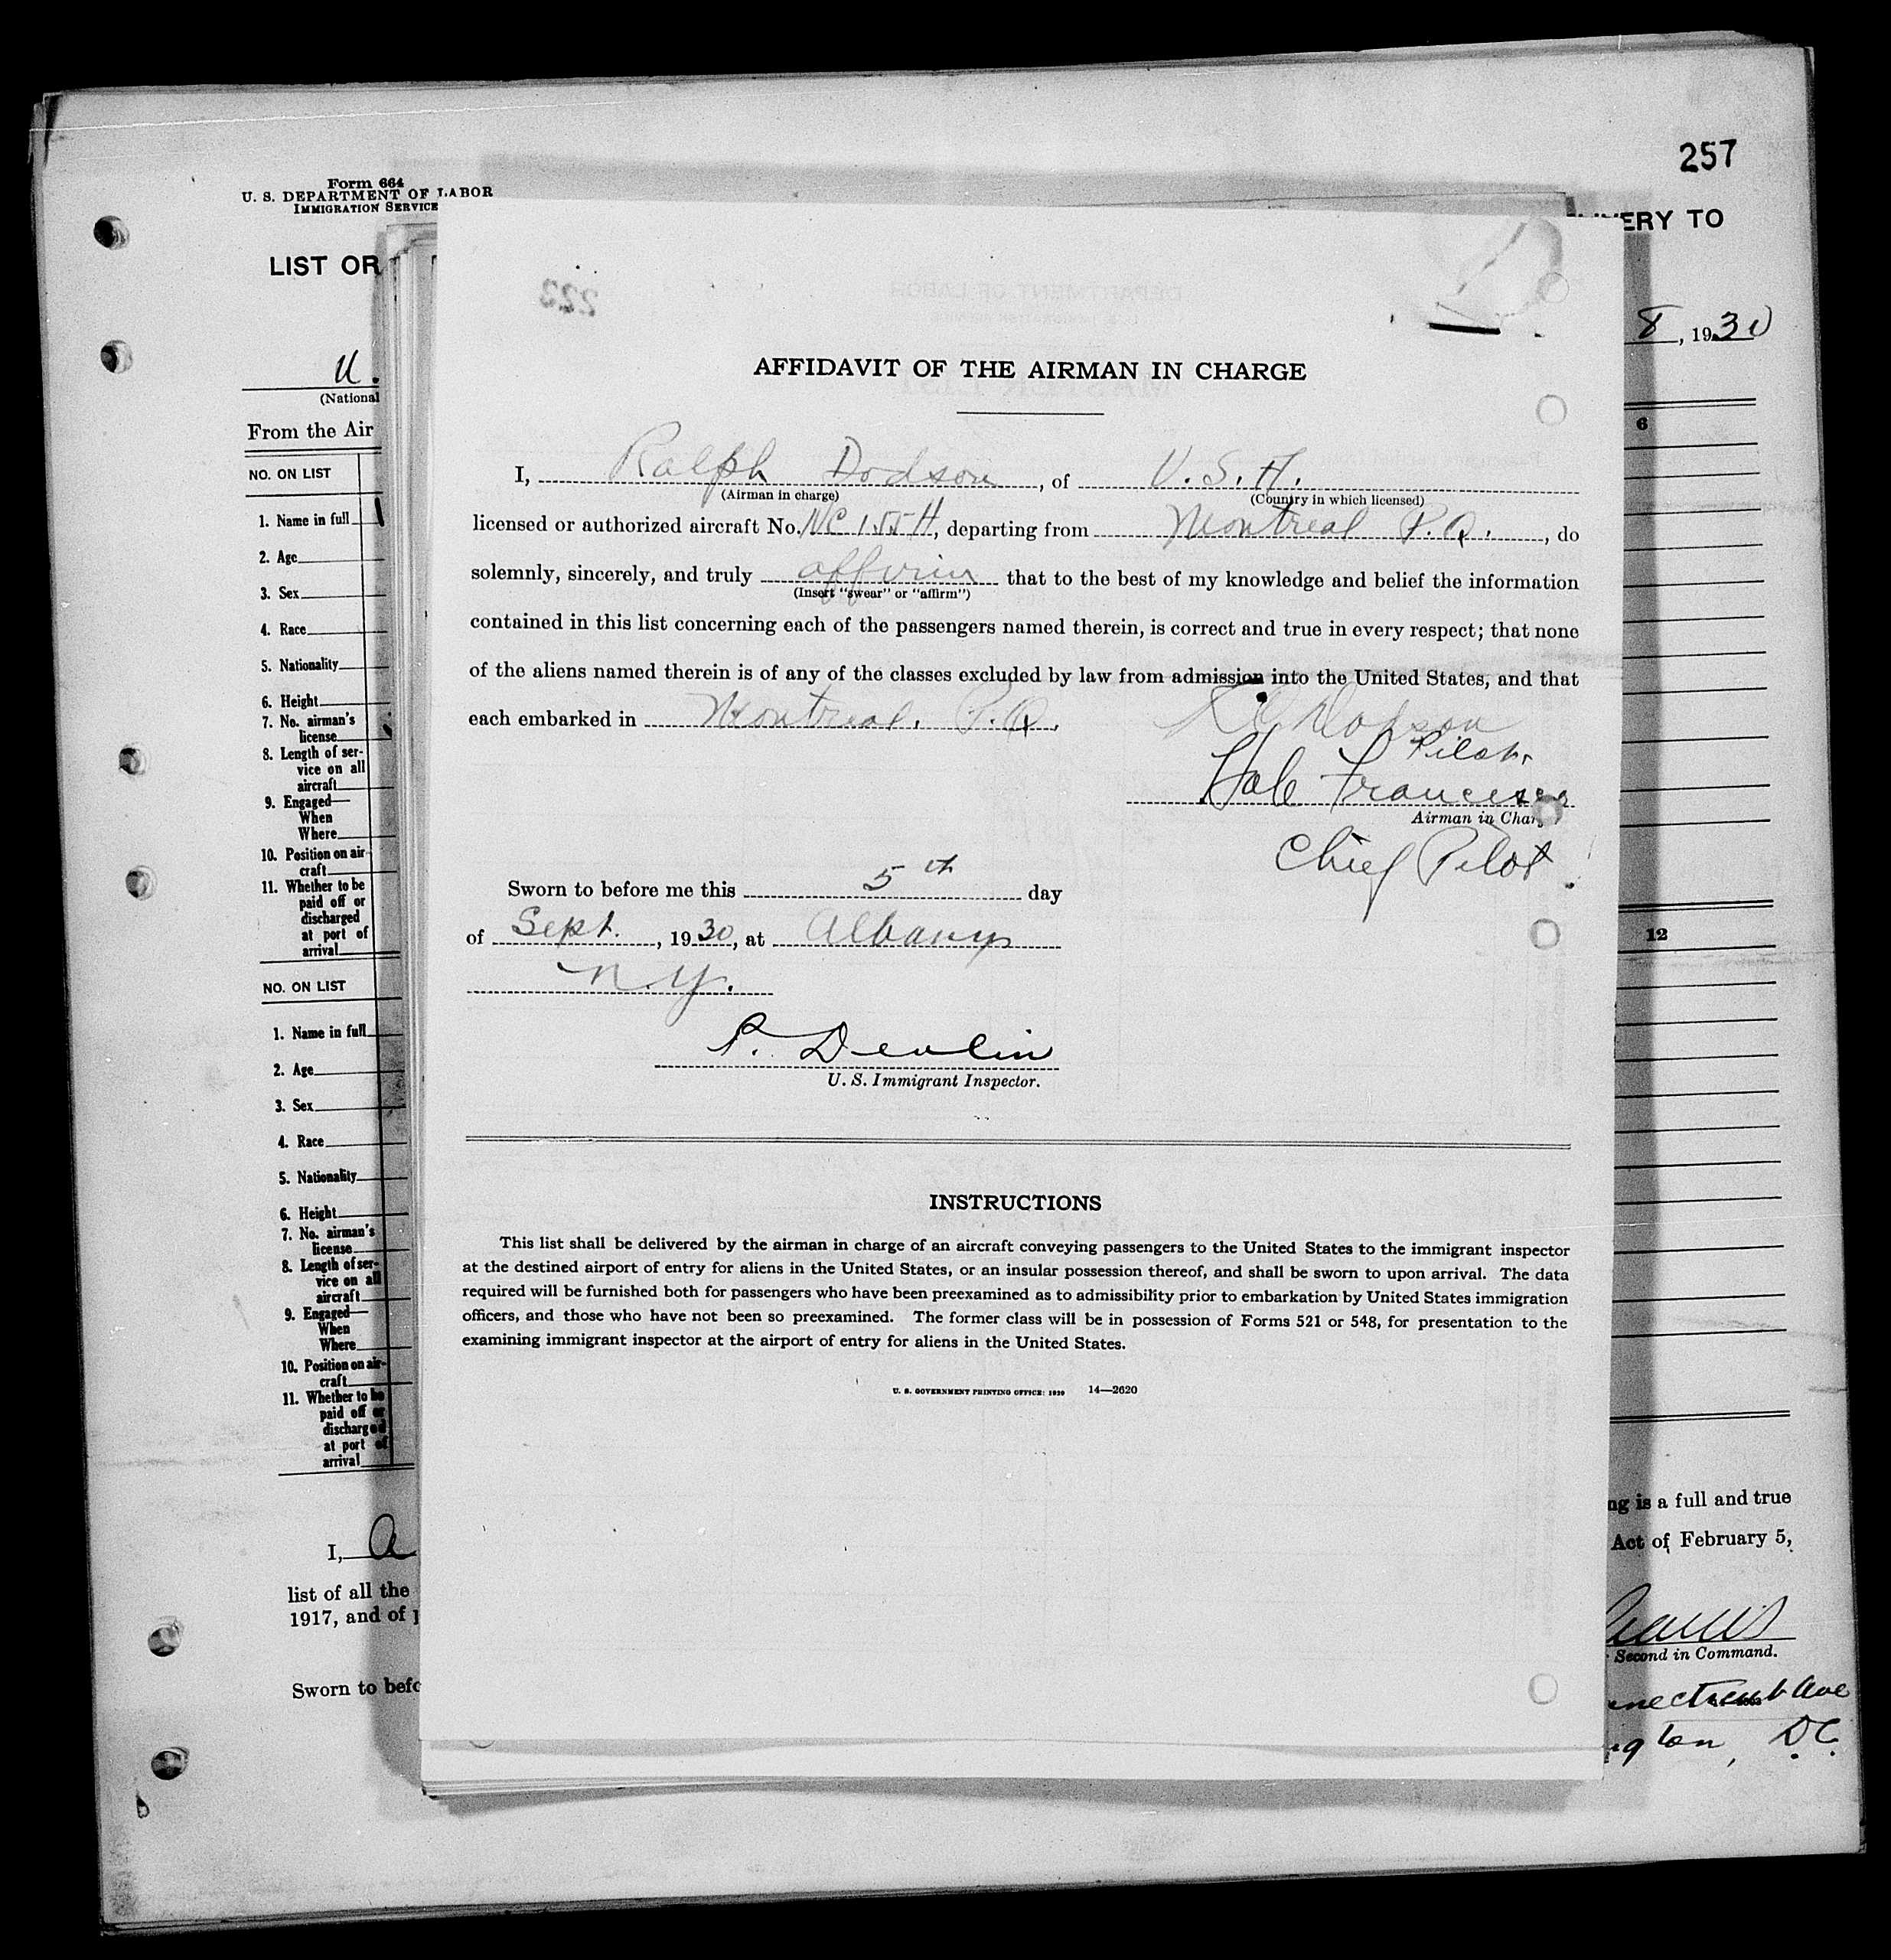 257
Form 664
U. S. DEPARTMENT OF LABOR
IMMIGRATION SERVICE
LIST OR
VERY TO
8, 1930
U.
(National
From the Air
NO. ON LIST
6
1. Name in full
2. Age
3. Sex
4. Race
5. Nationality
6. Height
7. No. airman's
license
8. Length of ser-
vice on all
aircraft
9. Engaged—
When
Where
10. Position on air-
craft
11. Whether to be
paid off or
discharged
at port of
arrival
12
NO. ON LIST
1. Name in full
2. Age
3. Sex
4. Race
5. Nationality
6. Height
7. No. airman's
license
8. Length of ser-
vice on all
aircraft
9. Engaged—
When
Where
10. Position on air-
craft
11. Whether to be
paid off or
discharged
at port of
arrival
I, A
list of all the
1917, and of
Sworn to befo
ng is a full and true
Act of February 5,
Second in Command.
Ave
D.C.
223
AFFIDAVIT OF THE AIRMAN IN CHARGE
I, Ralph Dodson, of U.S.A.
(Airman in charge) (Country in which licensed)
licensed or authorized aircraft No. NC 155H, departing from Montreal P.Q., do
solemnly, sincerely, and truly affirm that to the best of my knowledge and belief the information
(Insert "swear" or "affirm")
contained in this list concerning each of the passengers named therein, is correct and true in every respect; that none
of the aliens named therein is of any of the classes excluded by law from admission into the United States, and that
each embarked in Montreal. P.Q.
Dodson
Pilot.
Francis
Airman in Charge
Chief Pilot
Sworn to before me this 5th day
of Sept., 1930, at Albany
N.Y.
P. Devlin
U. S. Immigrant Inspector.
INSTRUCTIONS
This list shall be delivered by the airman in charge of an aircraft conveying passengers to the United States to the immigrant inspector
at the destined airport of entry for aliens in the United States, or an insular possession thereof, and shall be sworn to upon arrival. The data
required will be furnished both for passengers who have been preexamined as to admissibility prior to embarkation by United States immigration
officers, and those who have not been so preexamined. The former class will be in possession of Forms 521 or 548, for presentation to the
examining immigrant inspector at the airport of entry for aliens in the United States.
U. S. GOVERNMENT PRINTING OFFICE: 1929 14—2620